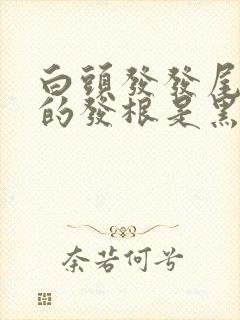 白頭發發尾
的發根是黑
奈若何兮